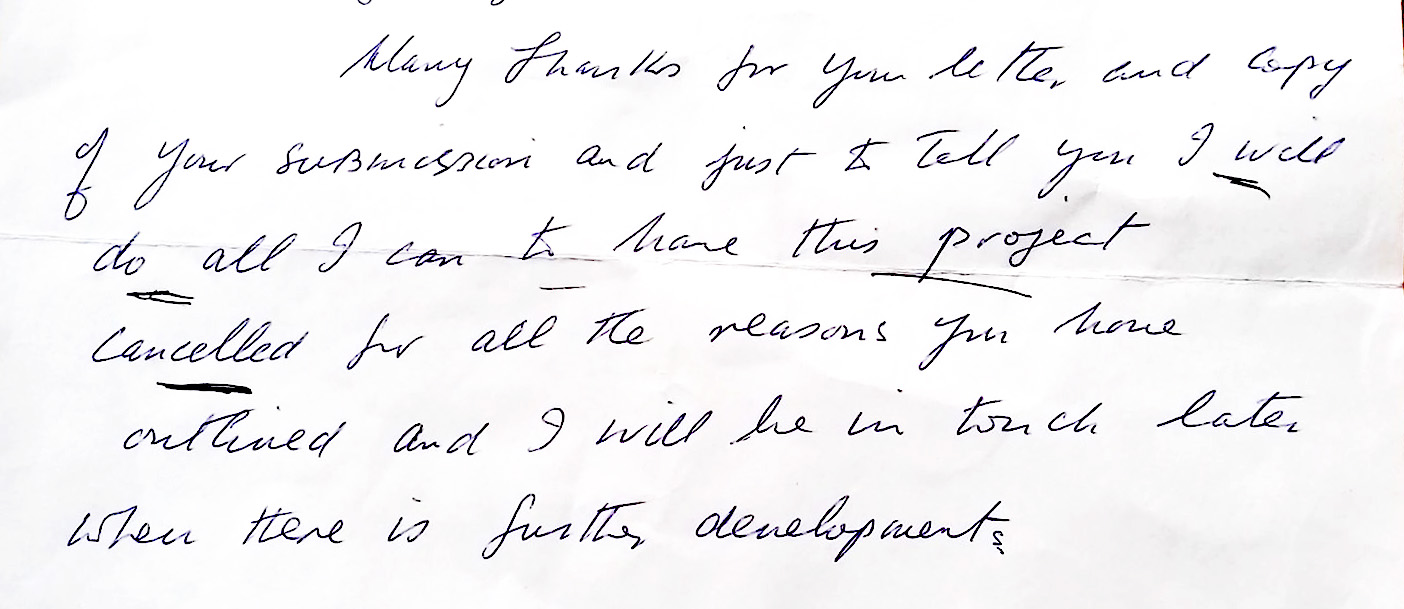 Many thanks for your letter and copy
of your submission and just to tell you I will
do all I can to have this project
cancelled for all the reasons you have
outlined and I will be in touch later
when there is further developments